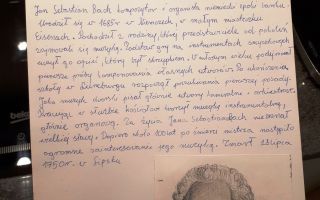 Jan Sebastian Bach kompozytor i organista niemiecki epoki baroku.
Urodził się w 1685r w Niemczech, w małym miasteczku
Eisenach. Pochodził z rodziny, której przedstawiciele od pokoleń
zajmowali się muzyką. Podstaw gry na instrumentach smyczkowych
uczył go ojciec, który był skrzypkiem. W młodym wieku podejmował
pierwsze próby komponowania własnych utworów. Po ukończeniu
szkoły w Lüneburgu rozpoczął poszukiwania pierwszej posady.
Jako muzyk dworski pisał głównie utwory kameralne i orkiestrowe.
Pracując w służbie kościoła tworzył muzykę instrumentalną,
głównie organową. Za życia Jan Sebastian Bach nie zaznał
wielkiej sławy. Dopiero około 100 lat po śmierci mistrza nastąpiło
ogromne zainteresowanie jego muzyką. Zmarł 28 lipca
1750r. w Lipsku